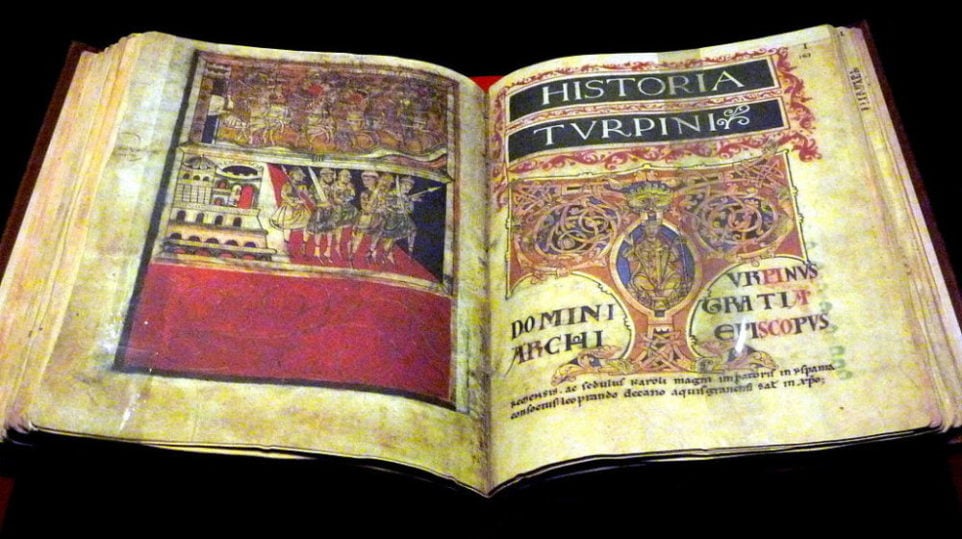 I
163
HISTORIA
TVRPINI
T URPINVS
DOMINI GRATIA
ARCHI EPISCOPVS
REMENSIS. ac sedulus Karoli magni imperatoris in yspania
consocius leoprando decano aquisgranensi salt in xpo;